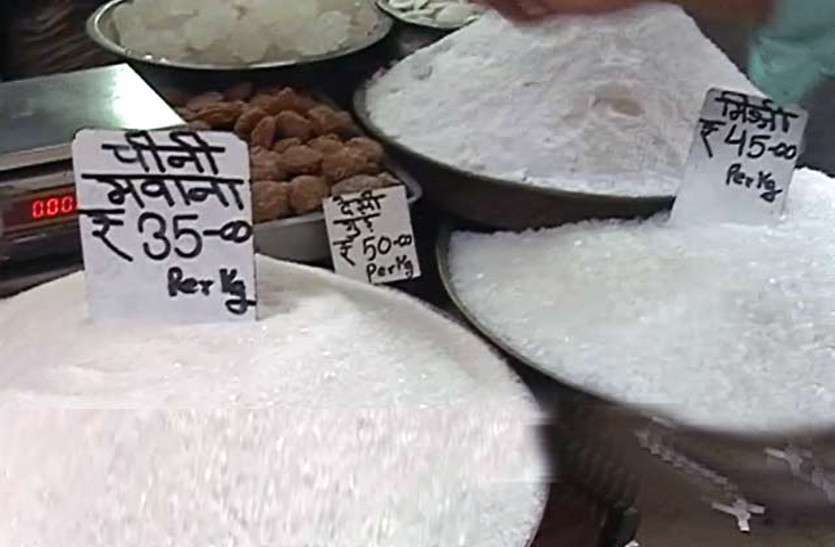 चीनी
मवाना
₹35-00
Per Kg
देसी
गुड़
₹50-00
Per Kg
मिश्री
₹45-00
Per Kg
0.00